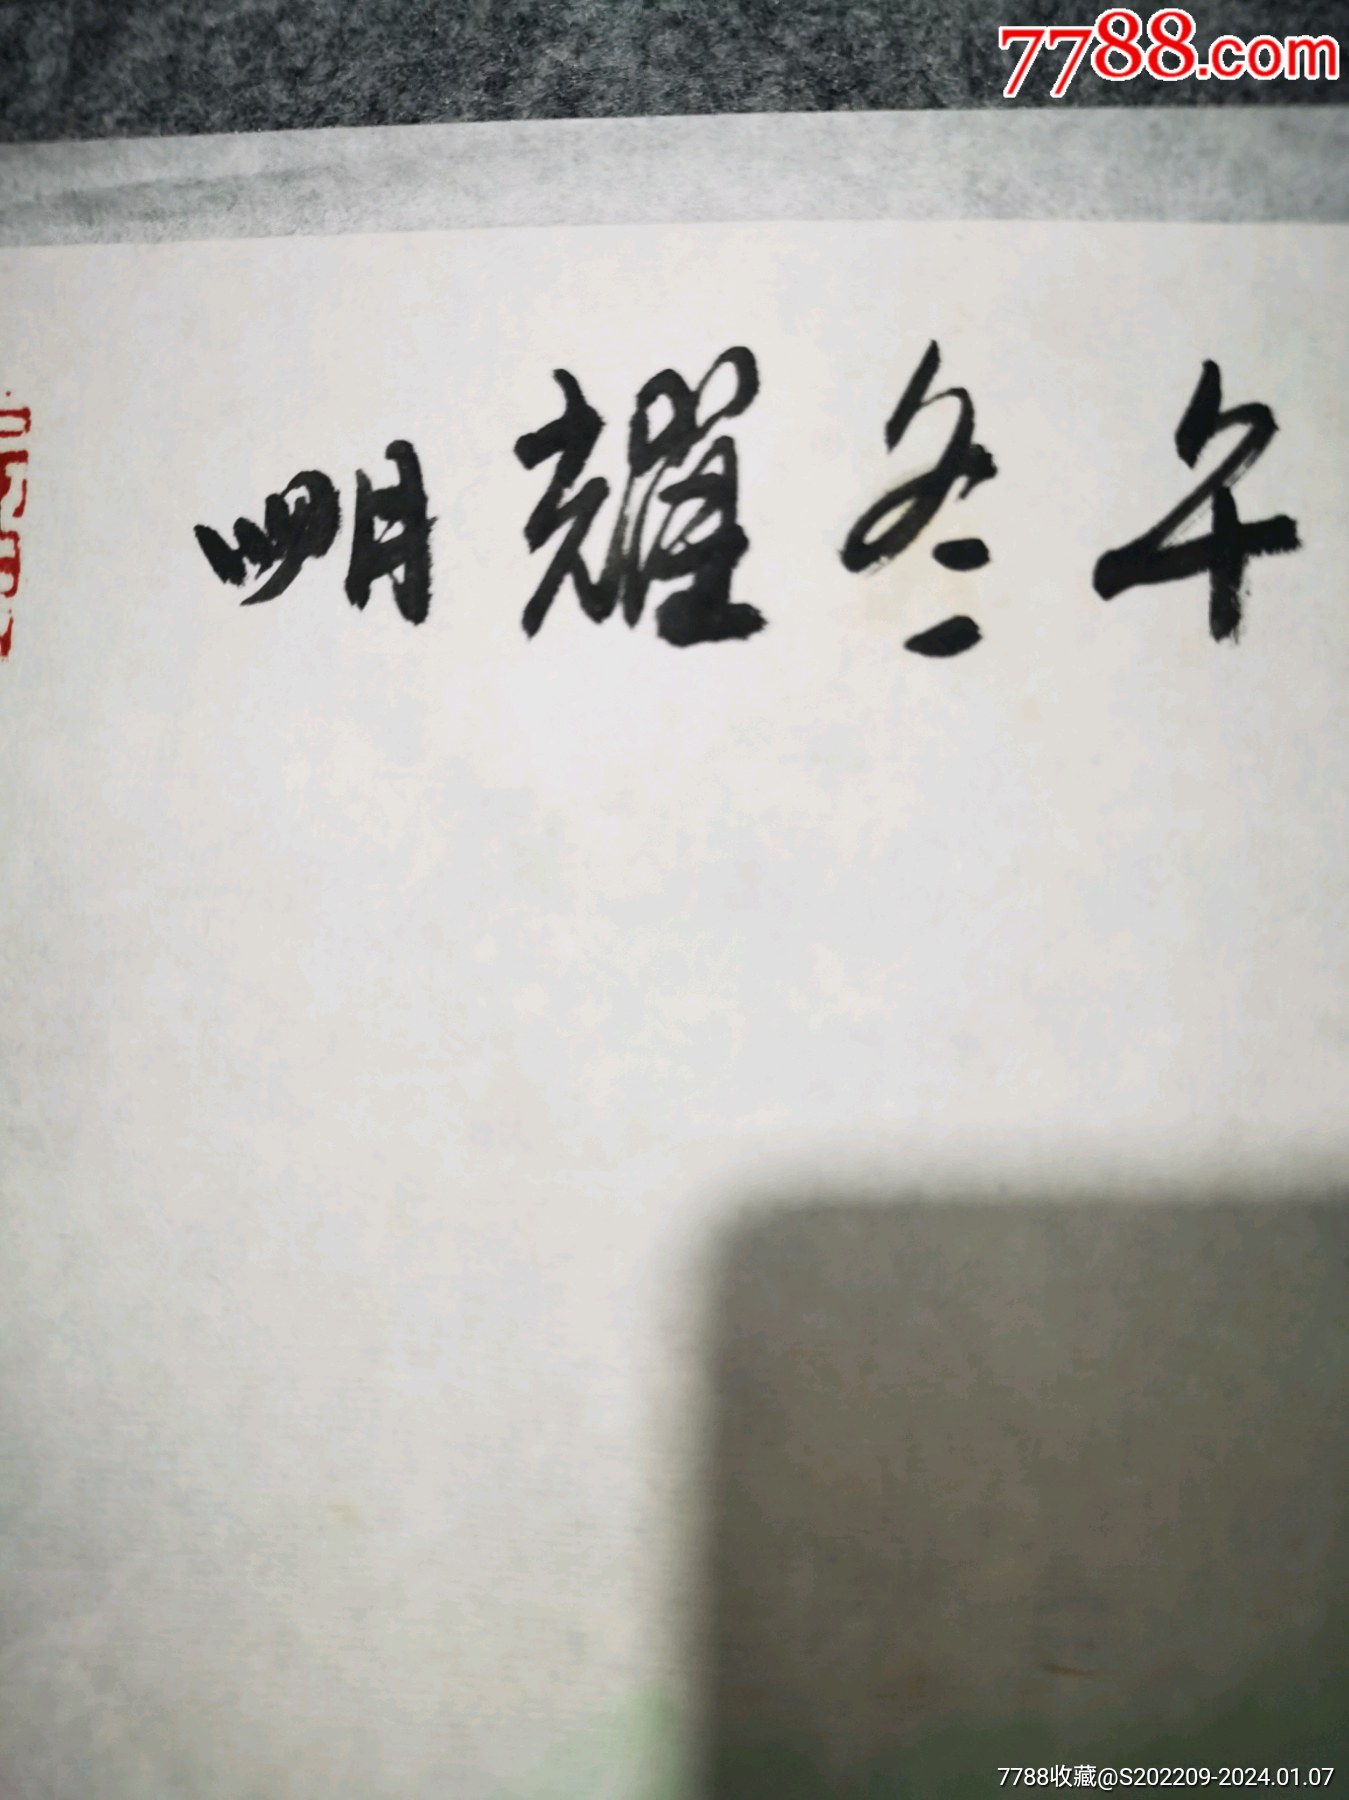 7788.com
午冬耀明
7788收藏@S202209-2024.01.07